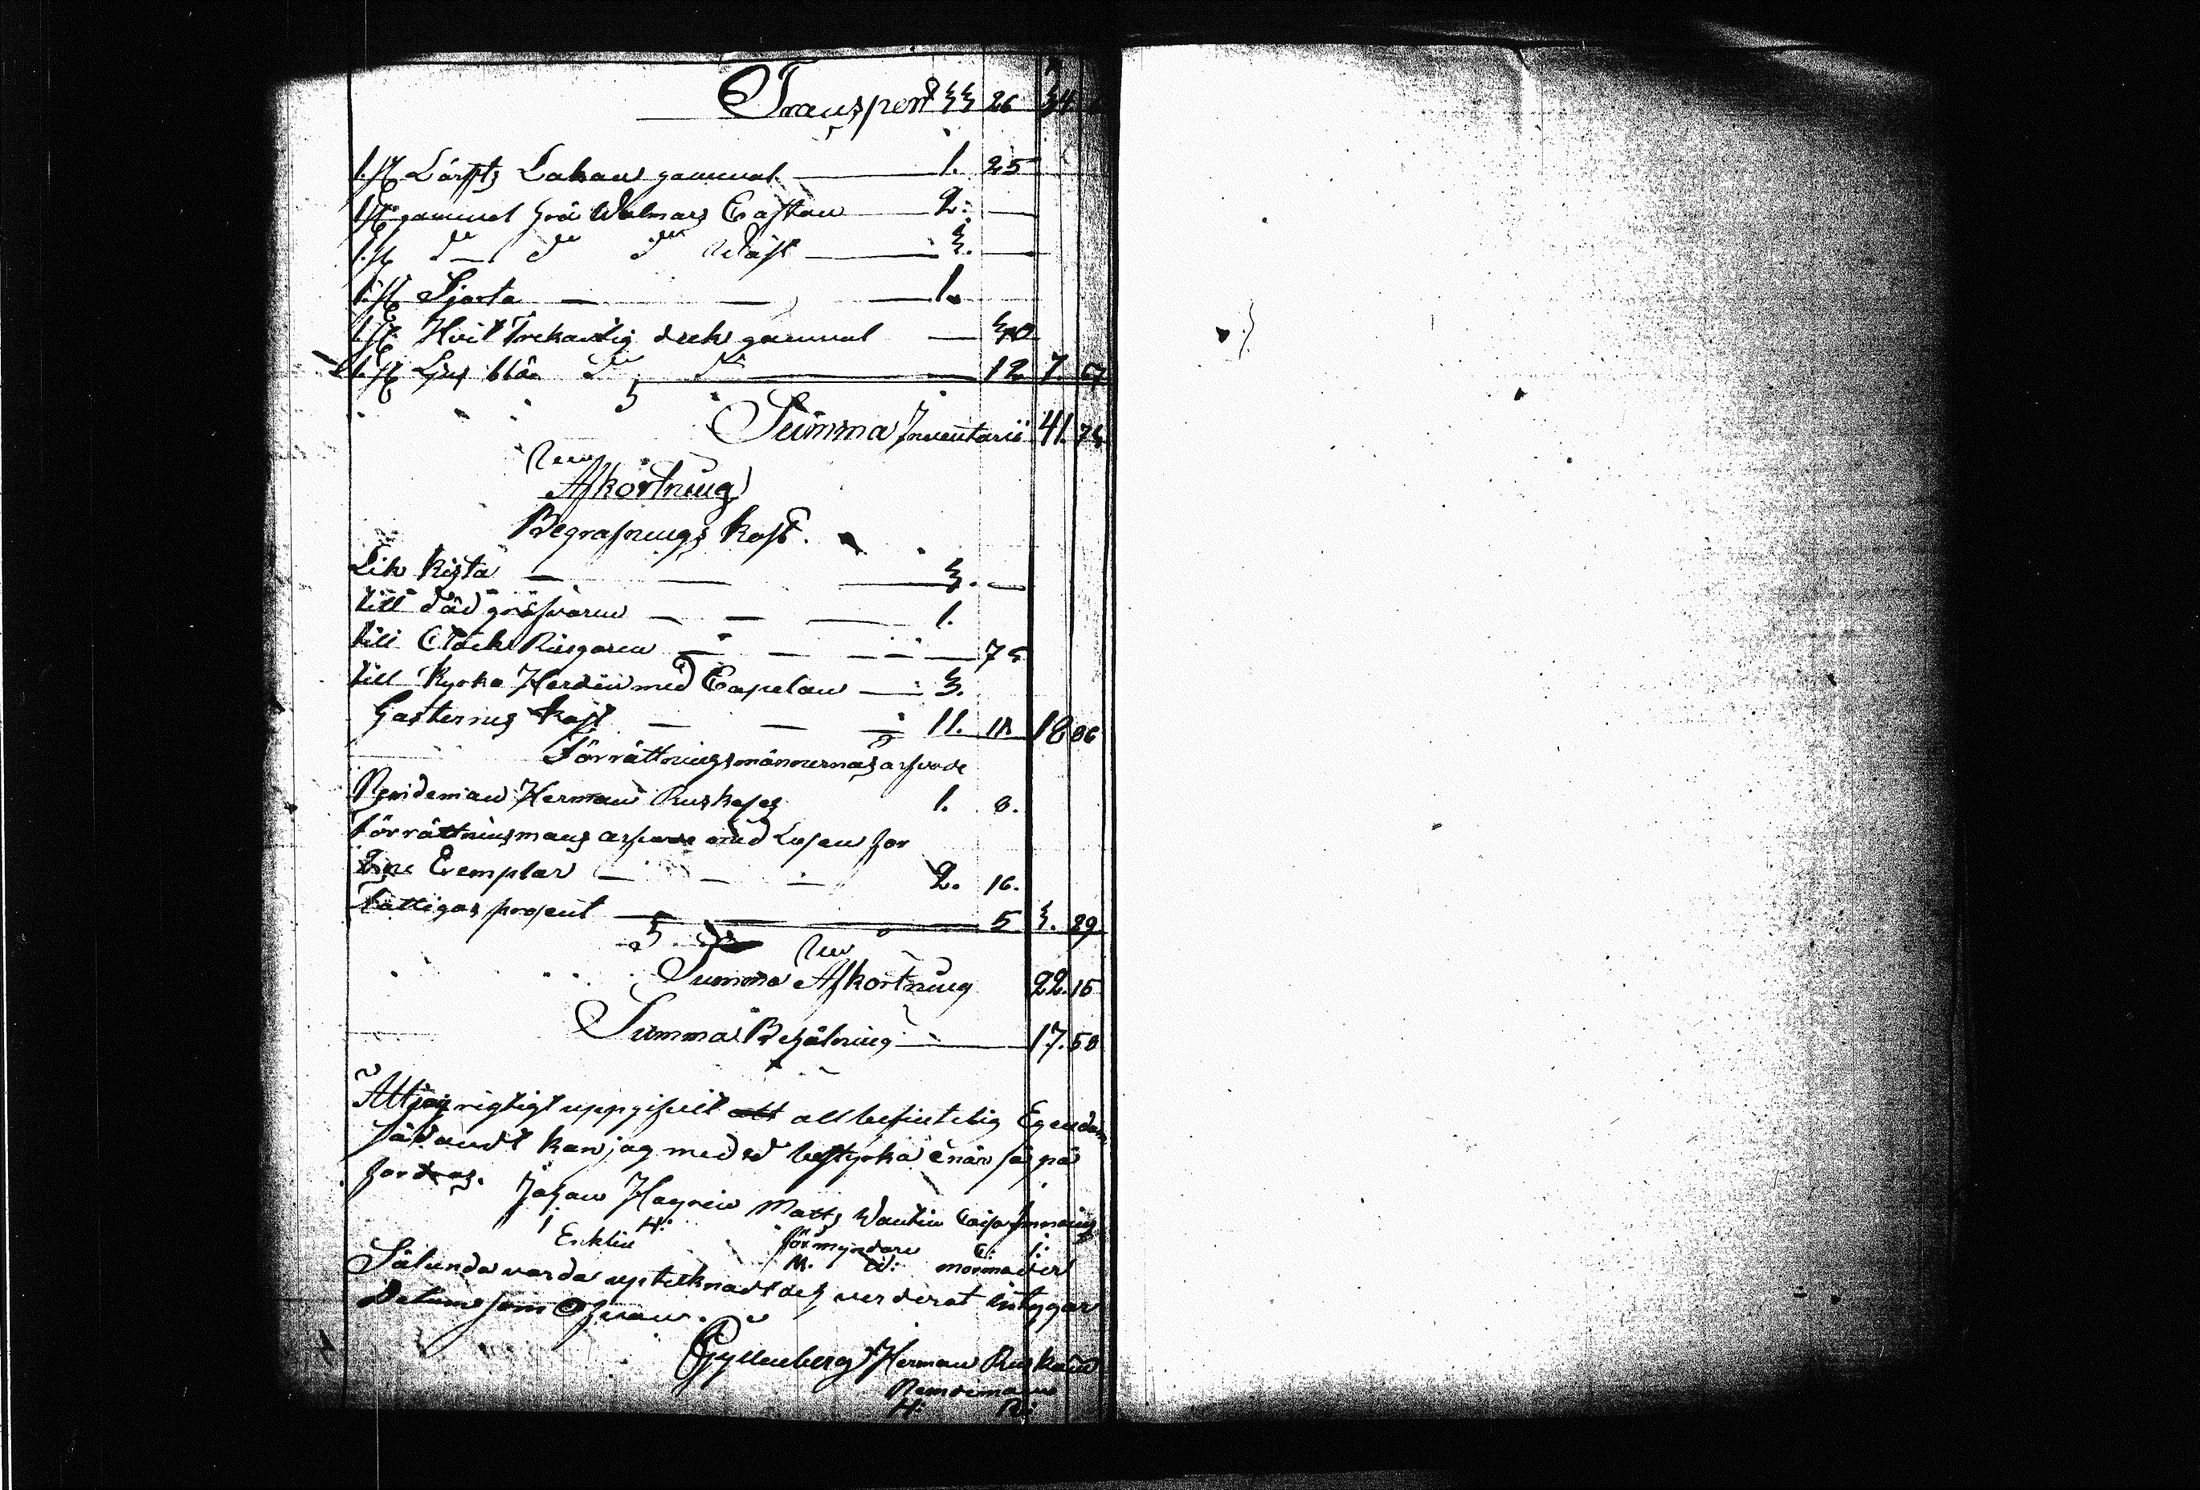 Transport 33 26 34
1 st Lärfts Lakan gammal — 1. 25
1 st gammal grå Walmars Caftan — 2. —
1 st do do do Wäst — 3. —
1 st Sjorta — — 1.
1 st Hvit Trekantig duk gammal — 30
1 st Ljus blå do do — 12. 7. 67
Summa Inventarii 41.
Afkortning
Begrafnings kost.
Lik kista — — 3. —
till död gräfvaren — — 1.
till Clock Ringaren — — 75
till Kyrko Herden med Capelan — 3.
Gasternis kost — — 11. 11. 18 86
Förrättningsmännernas arfvode
Nemdeman Herman 1. 8.
Förrättningsmans arfvode med Losen for
Exemplar — — 2. 16.
Fattigas prosent — 5 3. 29
Summa Afkortning 22. 15
Summa Behålning — 17. 58
Att jag rigtigt uppgifvit all befintelig Egendom
sådandt kan jag med ed bestyrka enär så på
fordras. Johan Matts Caisa
Enklin förmyndare
M. W: mormoder
Sålunda varda uptecknadt och verderat intygar
Datum som Ofvan.
Gyllenberg Herman
Nemdeman
H: R: